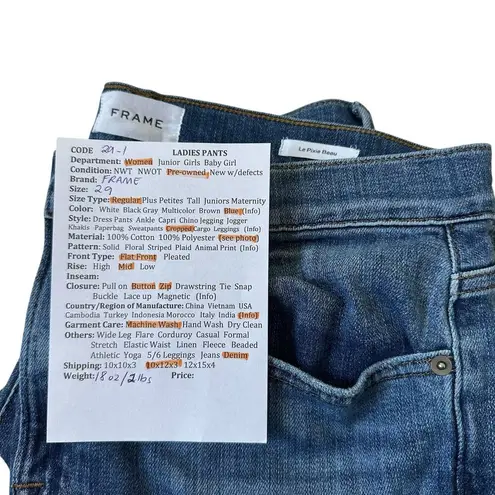 FRAME
Le Pixie Beau
CODE 29-1 LADIES PANTS
Department: Women Junior Girls Baby Girl
Condition: NWT NWOT Pre-owned, New w/defects
Brand: FRAME
Size: 29
Size Type: Regular Plus Petites Tall Juniors Maternity
Color: White Black Gray Multicolor Brown Blue (Info)
Style: Dress Pants Ankle Capri Chino Jegging Jogger
Khakis Paperbag Sweatpants Cropped Cargo Leggings (Info)
Material: 100% Cotton 100% Polyester (see photo)
Pattern: Solid Floral Striped Plaid Animal Print (Info)
Front Type: Flat Front Pleated
Rise: High Mid Low
Inseam:
Closure: Pull on Button Zip Drawstring Tie Snap
Buckle Lace up Magnetic (Info)
Country/Region of Manufacture: China Vietnam USA
Cambodia Turkey Indonesia Morocco Italy India (Info)
Garment Care: Machine Wash Hand Wash Dry Clean
Others: Wide Leg Flare Corduroy Casual Formal
Stretch Elastic Waist Linen Fleece Beaded
Athletic Yoga 5/6 Leggings Jeans Denim
Shipping: 10x10x3 10x12x3 12x15x4
Weight: 18 oz/2 lbs Price: